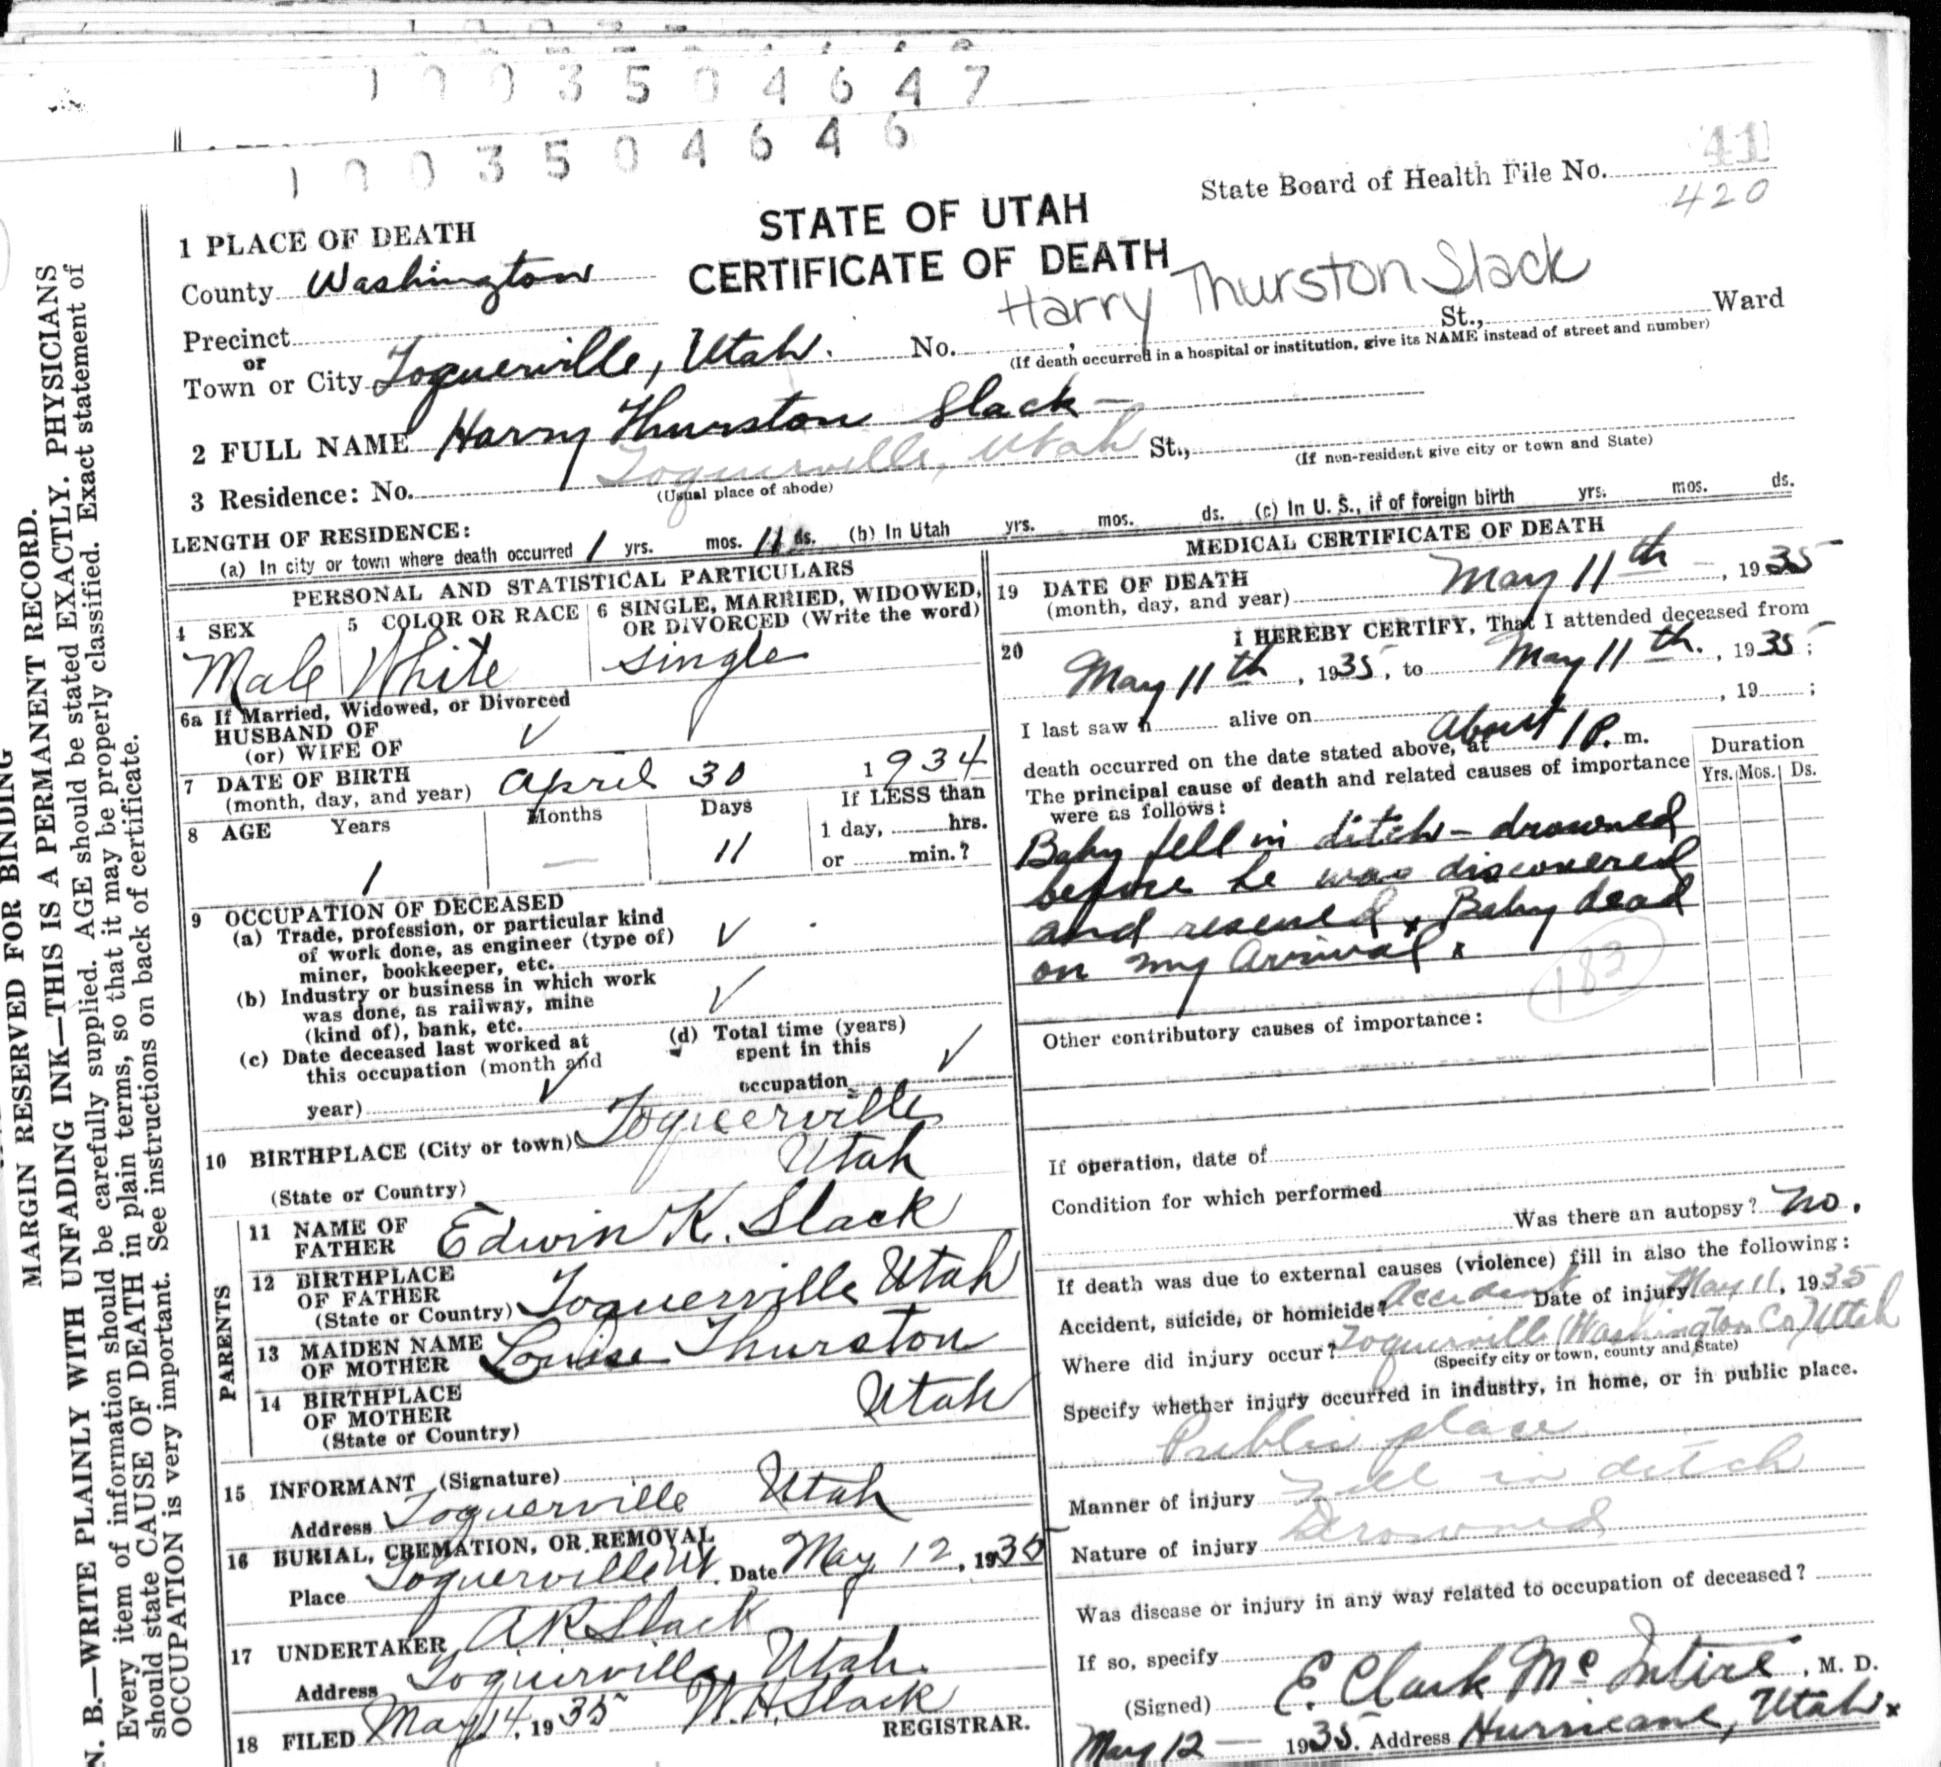 1003504647
1003504646
State Board of Health File No. 41
420
STATE OF UTAH
CERTIFICATE OF DEATH
Harry Thurston Slack
1 PLACE OF DEATH
County Washington
Precinct
or
Town or City Toquerville, Utah. No. St., Ward
(If death occurred in a hospital or institution, give its NAME instead of street and number)
2 FULL NAME Harry Thurston Slack
3 Residence: No. Toquerville, Utah St.,
(Usual place of abode) (If non-resident give city or town and State)
LENGTH OF RESIDENCE:
(a) In city or town where death occurred 1 yrs. mos. 11 ds. (b) In Utah yrs. mos. ds. (c) In U. S., if of foreign birth yrs. mos. ds.
PERSONAL AND STATISTICAL PARTICULARS
4 SEX
Male
5 COLOR OR RACE
White
6 SINGLE, MARRIED, WIDOWED,
OR DIVORCED (Write the word)
single
6a If Married, Widowed, or Divorced
HUSBAND OF
(or) WIFE OF
7 DATE OF BIRTH
(month, day, and year) April 30 1934
8 AGE Years Months Days If LESS than
1 day, hrs.
or min.?
1 — 11
9 OCCUPATION OF DECEASED
(a) Trade, profession, or particular kind
of work done, as engineer (type of)
miner, bookkeeper, etc.
(b) Industry or business in which work
was done, as railway, mine
(kind of), bank, etc.
(c) Date deceased last worked at
this occupation (month and
year)
(d) Total time (years)
spent in this
occupation
10 BIRTHPLACE (City or town) Toquerville
(State or Country) Utah
PARENTS
11 NAME OF
FATHER Edwin K. Slack
12 BIRTHPLACE
OF FATHER
(State or Country) Toquerville Utah
13 MAIDEN NAME
OF MOTHER Louise Thurston
14 BIRTHPLACE
OF MOTHER
(State or Country) Utah
15 INFORMANT (Signature)
Address Toquerville Utah
16 BURIAL, CREMATION, OR REMOVAL
Place Toquerville Ut. Date May 12, 1935
17 UNDERTAKER A.R. Slack
Address Toquerville, Utah.
18 FILED May 14, 1935 W.H. Slack
REGISTRAR.
MEDICAL CERTIFICATE OF DEATH
19 DATE OF DEATH
(month, day, and year) May 11th, 1935
20 I HEREBY CERTIFY, That I attended deceased from
May 11th, 1935, to May 11th., 1935;
I last saw h alive on , 19 ;
death occurred on the date stated above, at About 1 P. m.
The principal cause of death and related causes of importance
were as follows:
Duration
Yrs. Mos. Ds.
Baby fell in ditch - drowned
before he was discovered
and rescued x Baby dead
on my Arrival x
183
Other contributory causes of importance:
If operation, date of
Condition for which performed
Was there an autopsy? No.
If death was due to external causes (violence) fill in also the following:
Accident, suicide, or homicide? Accident Date of injury May 11, 1935
Where did injury occur? Toquerville (Washington Co) Utah
(Specify city or town, county and State)
Specify whether injury occurred in industry, in home, or in public place.
Public place
Manner of injury Fell in ditch
Nature of injury Drowned
Was disease or injury in any way related to occupation of deceased?
If so, specify
(Signed) E. Clark McIntire, M. D.
May 12 — 1935. Address Hurricane, Utah x
MARGIN RESERVED FOR BINDING
N. B.—WRITE PLAINLY WITH UNFADING INK—THIS IS A PERMANENT RECORD.
Every item of information should be carefully supplied. AGE should be stated EXACTLY. PHYSICIANS
should state CAUSE OF DEATH in plain terms, so that it may be properly classified. Exact statement of
OCCUPATION is very important. See instructions on back of certificate.